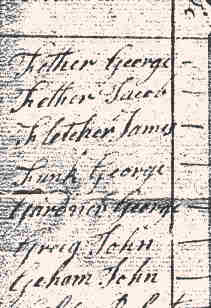 Fether George -
Fether Jacob
Fletcher James -
Funk George -
Gardner George
Greig John -
Geham John -